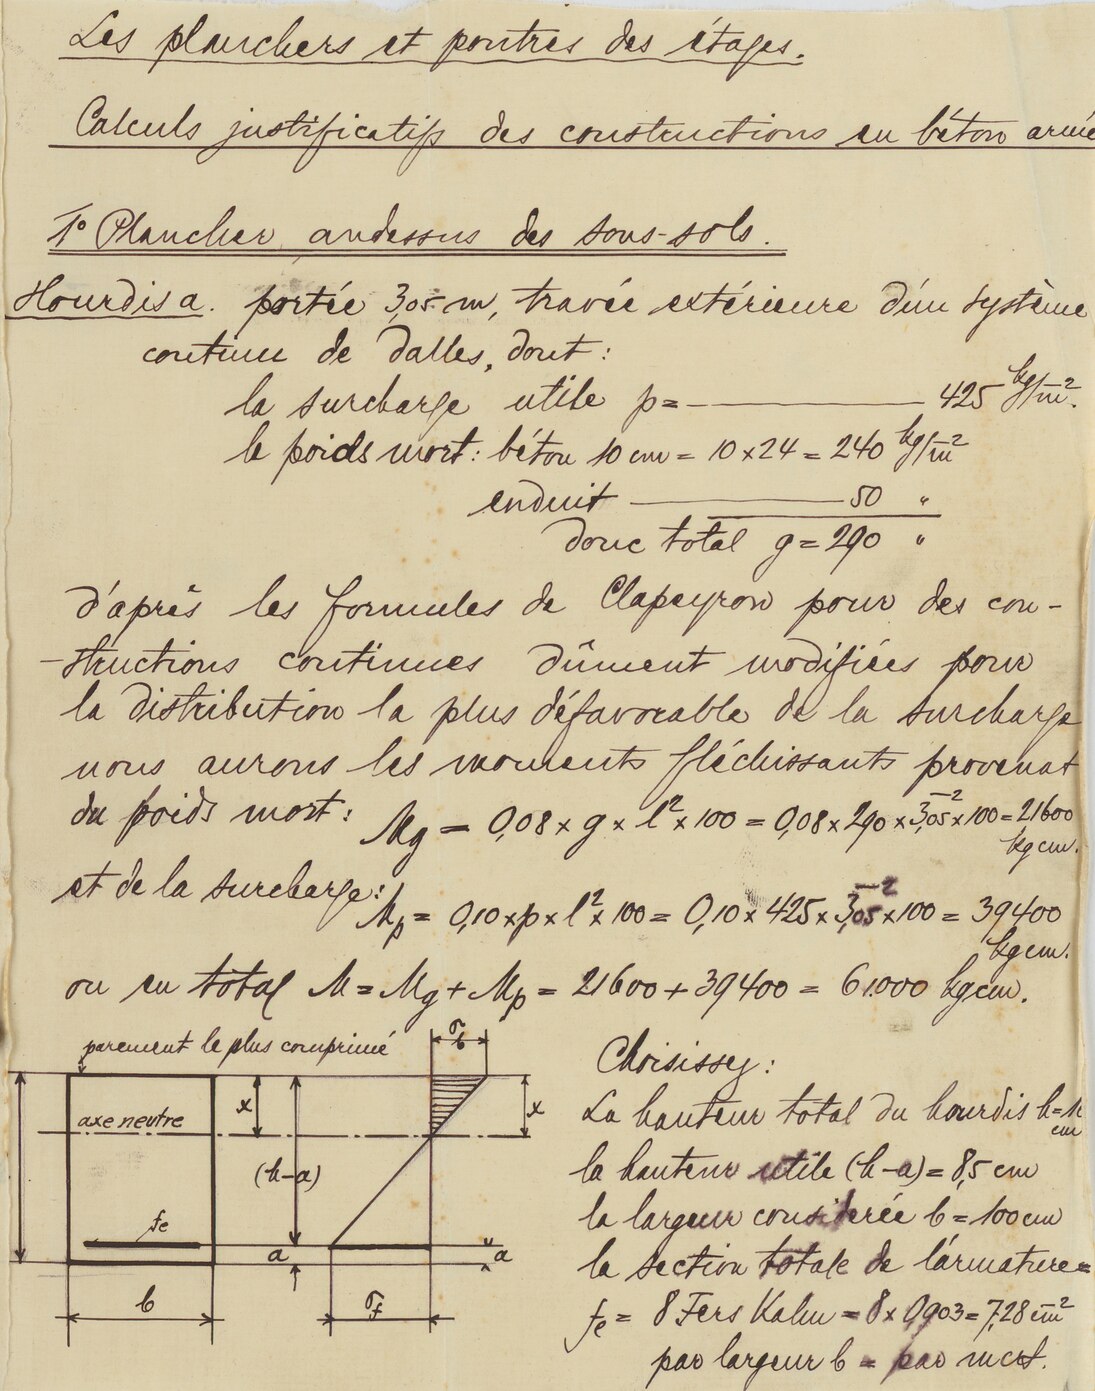 Les planchers et poutres des étages.
Calculs justificatifs des constructions en béton armé
1° Plancher audessus des sous-sols.
Hourdis a. portée 3,05 m, travée extérieure d'un système
continu de dalles, dont:
la surcharge utile p= 425 kg/m².
le poids mort: béton 10 cm = 10 x 24 = 240 kg/m²
enduit 50 "
donc total g = 290 "
d'après les formules de Clapeyron pour des con-
-structions continues dûment modifiées pour
la distribution la plus défavorable de la surcharge
nous aurons les moments fléchissants provenat
du poids mort: Mg = 0,08 x g x l² x 100 = 0,08 x 290 x 3,05² x 100 = 21600
kgcm.
et de la surcharge: Mp = 0,10 x p x l² x 100 = 0,10 x 425 x 3,05² x 100 = 39400
kgcm.
ou en total M = Mg + Mp = 21600 + 39400 = 61000 kgcm.
parement le plus comprimé
σb
axe neutre
x
x
(h-a)
fe
a
a
b
σf
Choisissez:
La hauteur total du hourdis h=
cm
la hauteur utile (h-a) = 8,5 cm
la largeur considérée b = 100 cm
la section totale de l'armature =
fe = 8 Fers Kahn = 8 x 0,903 = 7,28 cm²
par largeur b = par mct.